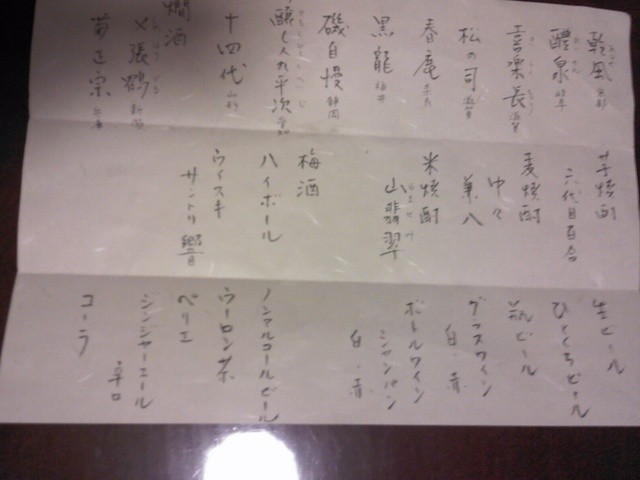 乾風 京都
醴泉 岐阜
喜楽長 滋賀
松の司 滋賀
春鹿 奈良
黒龍 福井
磯自慢 静岡
醸し人九平次 愛知
十四代 山形
燗酒
〆張鶴 新潟
菊正宗 兵庫
芋焼酎
六代目百合
麦焼酎
中々
兼八
米焼酎
山翡翠
梅酒
ハイボール
ウイスキ
サントリ響
生ビール
ひとくちビール
瓶ビール
グラスワイン
白・赤
ボトルワイン
シャンパン
白・赤
ノンアルコールビール
ウーロン茶
ペリエ
ジンジャーエール
辛口
コーラ